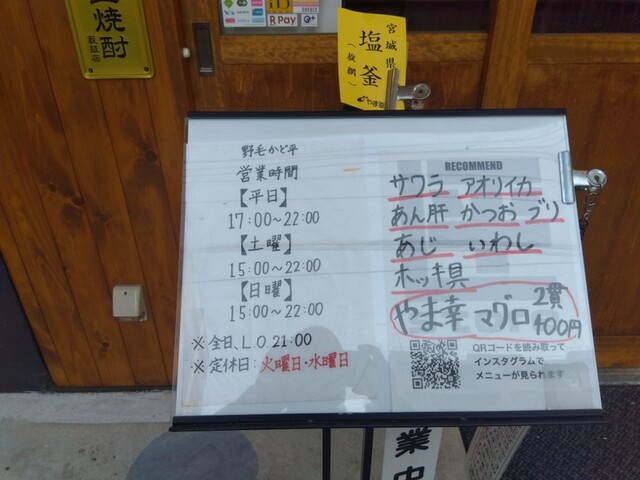 焼酎
iD
R Pay
宮城県
塩釜
野毛かど平
営業時間
【平日】
17:00~22:00
【土曜】
15:00~22:00
【日曜】
15:00~22:00
※全日、L.O.21:00
※定休日:火曜日・水曜日
RECOMMEND
サワラ アオリイカ
あん肝 かつお ブリ
あじ いわし
ホッキ貝
やま幸 マグロ 2貫 400円
QRコードを読み取って
インスタグラムで
メニューが見られます
業中